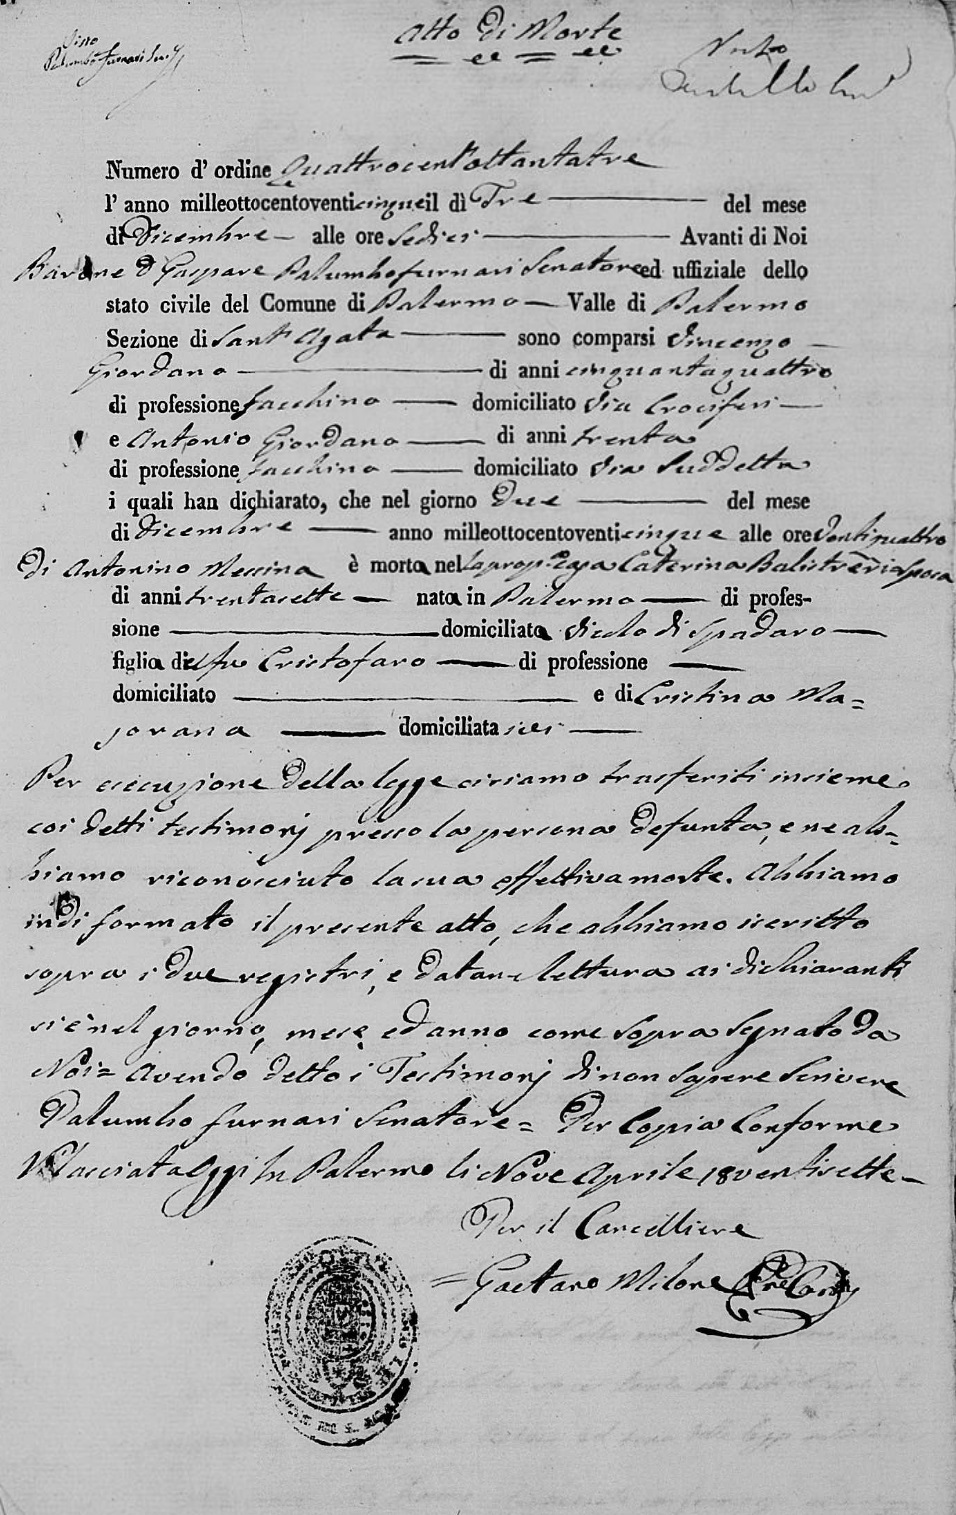 Atto di Morte
Visto
Palumbo furnari Sen.
Numero d' ordine Quattrocent'ottantatre
l' anno milleottocentoventicinque il dì Tre del mese
di Dicembre alle ore Sedici Avanti di Noi
Barone D Gaspare Palumbofurnari Senatore ed uffiziale dello
stato civile del Comune di Palermo Valle di Palermo
Sezione di Sant Agata sono comparsi Vincenzo
Giordano di anni cinquantaquattro
di professione facchino domiciliato Via Crociferi
e Antonio Giordano di anni trenta
di professione facchino domiciliato Via Suddetta
i quali han dichiarato, che nel giorno Due del mese
di Dicembre anno milleottocentoventicinque alle ore Ventiquattro
Di Antonino Messina è morta nel la propr. Casa Caterina Balistreri Sposa
di anni trentasette nata in Palermo di profes-
sione domiciliata Vicolo di Spadaro
figlia di fu Cristofaro di professione
domiciliato e di Cristina Ma=
jorana domiciliata ivi
Per esecuzione della legge ci siamo trasferiti insieme
coi detti testimonj presso la persona defunta, e ne ab=
biamo riconosciuto la sua effettiva morte. Abbiamo
indi formato il presente atto, che abbiamo iscritto
sopra i due registri, e datane lettura ai dichiaranti
si è nel giorno, mese, ed anno come sopra segnato da
Noi = Avendo detto i Testimonj di non sapere Scrivere
Palumbo furnari Senatore = Per Copia Conforme
Rilasciata Oggi In Palermo li Nove Aprile 18ventisette
Per il Cancelliere
= Gaetano Milone